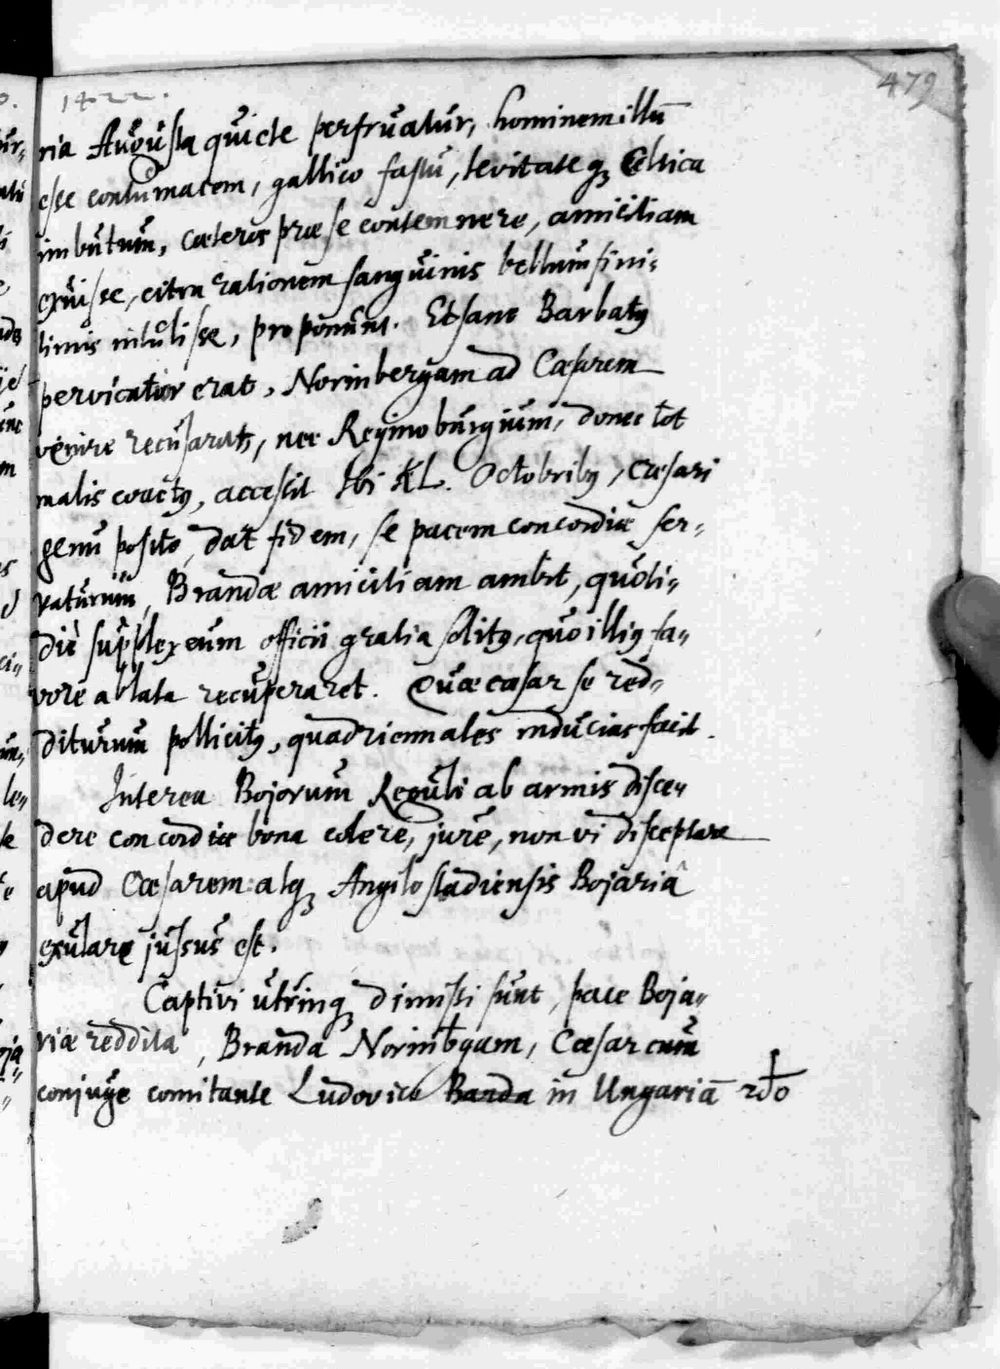 1422.
479
ria Augusta quiete perfruatur, hominem illū
esse contumacem, gallico fastu, levitate qꝫ Celtica
imbutum, cæteros præ se contemnere, amicitiam
exuisse, citra rationem sanguinis bellum fini-
timis intulisse, proponunt. Et sane Barbatꝰ
pervicatior erat, Norinbergam ad Cæsarem
venire recusarat, nec Reginoburgium, donec tot
malis coactꝰ, accessit Ibi KL. Octobribꝰ, Cæsari
genu posito, dat fidem, se pacem concordiæ ser-
vaturum, Brandæ amicitiam ambit, quoti-
die supplex eum officii gratia solitꝰ, quo illiꝰ fa-
vore ablata recuperaret. Quæ cæsar se red-
diturum pollicitꝰ, quadriennales inducias facit.
Interea Bojorum Reguli ab armis disce-
dere concordiæ bona colere, jure, non vi disceptare
apud Cæsarem: atqꝫ Angilostadiensis Bojariâ
exulare jussus est.
Captivi utrinqꝫ dimissi sunt, pace Boja-
riæ reddita, Branda Norinbgam, Cæsar cum
conjuge comitante Ludovico Barda in Ungariā